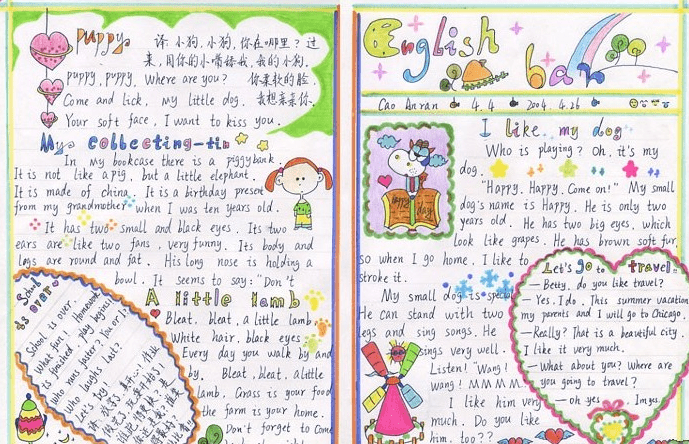 puppy
译:小狗,小狗,你在哪里?过
来,用你的小嘴舔我,我的小狗.
puppy, puppy, Where are you? 你柔软的脸,
Come and lick, my little dog. 我想亲亲你.
Your soft face, I want to kiss you.
My collecting-tin
In my bookcase there is a piggybank.
It is not like a pig, but a little elephant.
It is made of china. It is a birthday present
from my grandmother when I was ten years old.
It has two small and black eyes. Its two
ears are like two fans, very funny. Its body and
legs are round and fat. His long nose is holding a
bowl. It seems to say: "Don't
School is over
School is over.
What fun! Homework
is finished, play begins.
Who runs faster? You or I?
Who laugh last?
Let's try.
A little lamb
Bleat, bleat, a little lamb
White hair, black eyes
Every day you walk by and
by. Bleat, bleat, a little
lamb, Grass is your food
the farm is your home.
Don't forget to come
English bar
Cao Anran 4.4 2004.4.26
I like my dog
Who is playing? Oh, it's my
dog.
"Happy, Happy. Come on!" My small
dog's name is Happy. He is only two
years old. He has two big eyes, which
look like grapes. He has brown soft fur,
so when I go home, I like to
stroke it.
My small dog is special
He can stand with two
legs and sing songs. He
sings very well.
Listen! "Wang!
wang! MMMM
I like him very
much. Do you like
him, too??
happy day
Let's go to travel
– Betty, do you like travel?
– Yes, I do. This summer vacation,
my parents and I will go to Chicago.
– Really? That is a beautiful city.
I like it very much.
– What about you? Where are
you going to travel?
– Oh yes